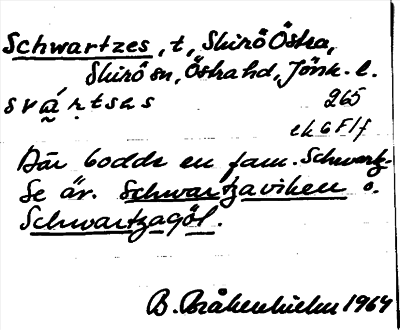 Schwartzes, t, Skirö Östra,
Skirö sn, Östra hd, Jönk. l.
svártsas 265
ek 6 F 1 f
Där bodde en fam. Schwartz.
Se äv. Schwartzaviken o.
Schwartzagöl.
B. Bråkenhielm 1964